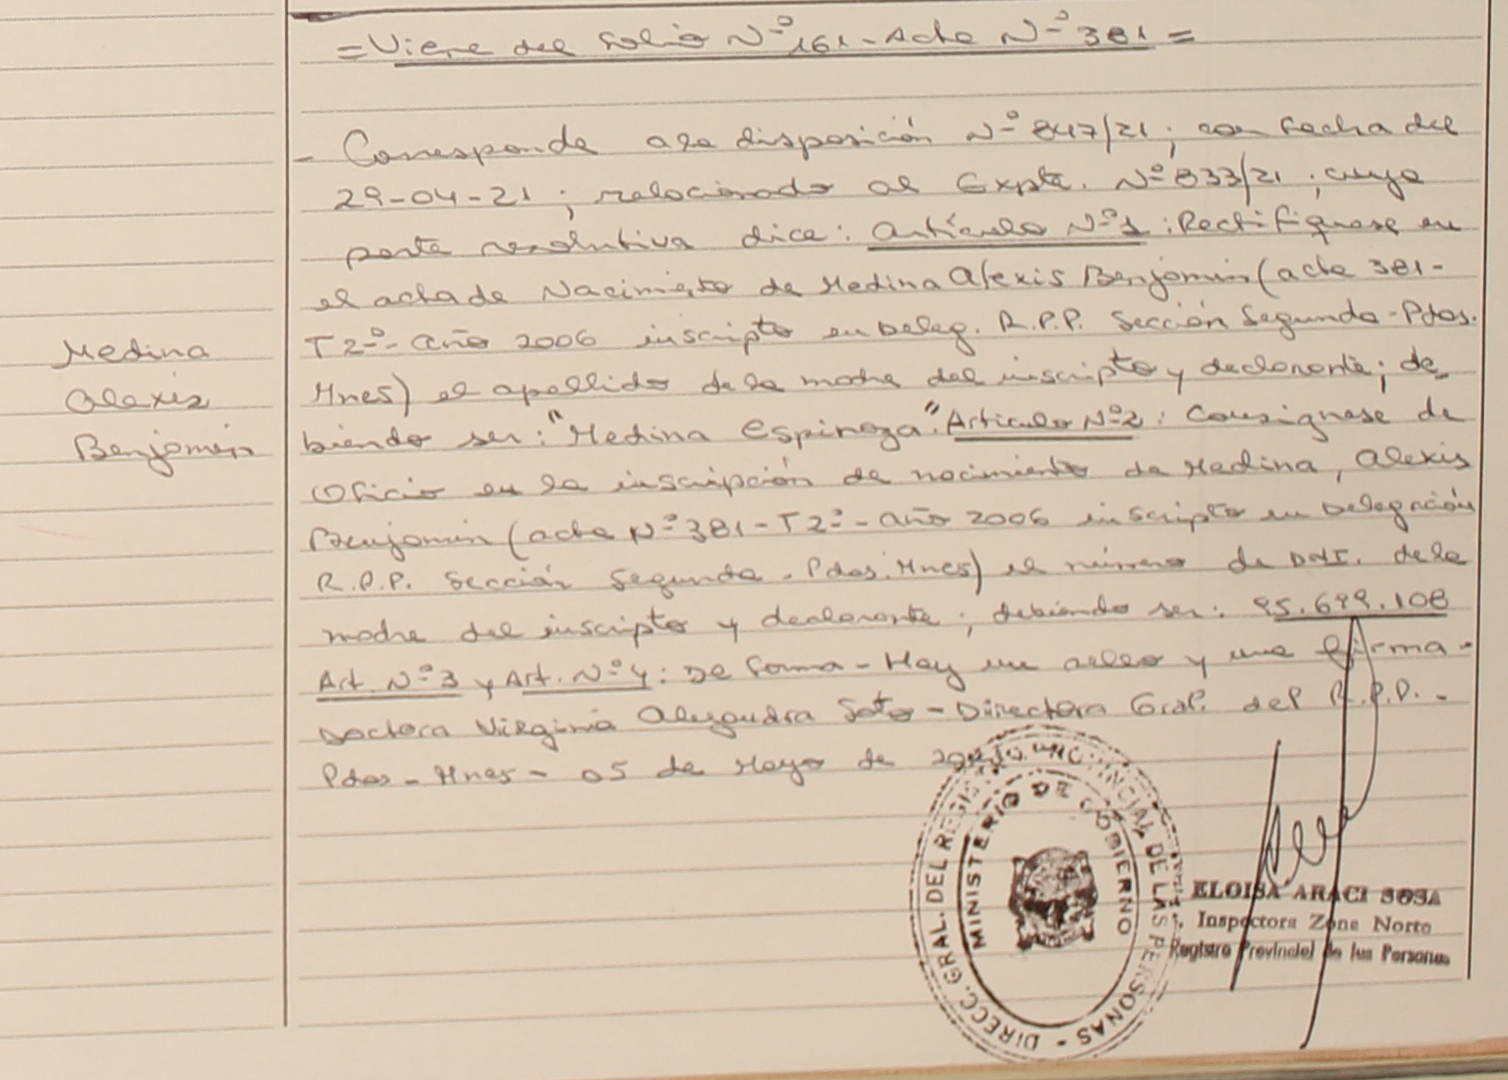 = Viene del folio Nº 161 - Acta Nº 381 =
- Corresponde a la disposición Nº 847/21; con fecha del
29-04-21; relacionado al Expte. Nº 833/21; cuya
parte resolutiva dice: Artículo Nº 1: Rectifíquese en
el acta de Nacimiento de Medina Alexis Benjamin (acta 381-
T2º- año 2006 inscripto en Deleg. R.P.P. Sección Segunda - Pdas.
Mnes) el apellido de la madre del inscripto y declarante; de_
biendo ser: "Medina Espinoza". Articulo Nº 2: Consignese de
Oficio en la inscripción de nacimiento de Medina, Alexis
Benjamin (acta Nº 381 - T2º - año 2006 inscripto en Delegación
R.P.P. Sección Segunda - Pdas. Mnes) el número de DNI. de la
madre del inscripto y declarante; debiendo ser: 95.699.108
Art. Nº 3 y Art. Nº 4: De forma - Hay un sello y una firma -
Doctora Virginia Alejandra Soto - Directora Gral. del R.P.P. -
Pdas - Mnes - 05 de Mayo de
Medina
Alexis
Benjamin
DIRECC. GRAL. DEL REGISTRO PROVINCIAL DE LAS PERSONAS -
MINISTERIO DE GOBIERNO
ELOISA ARACI SOSA
Inspectora Zona Norte
Registro Provincial de las Personas